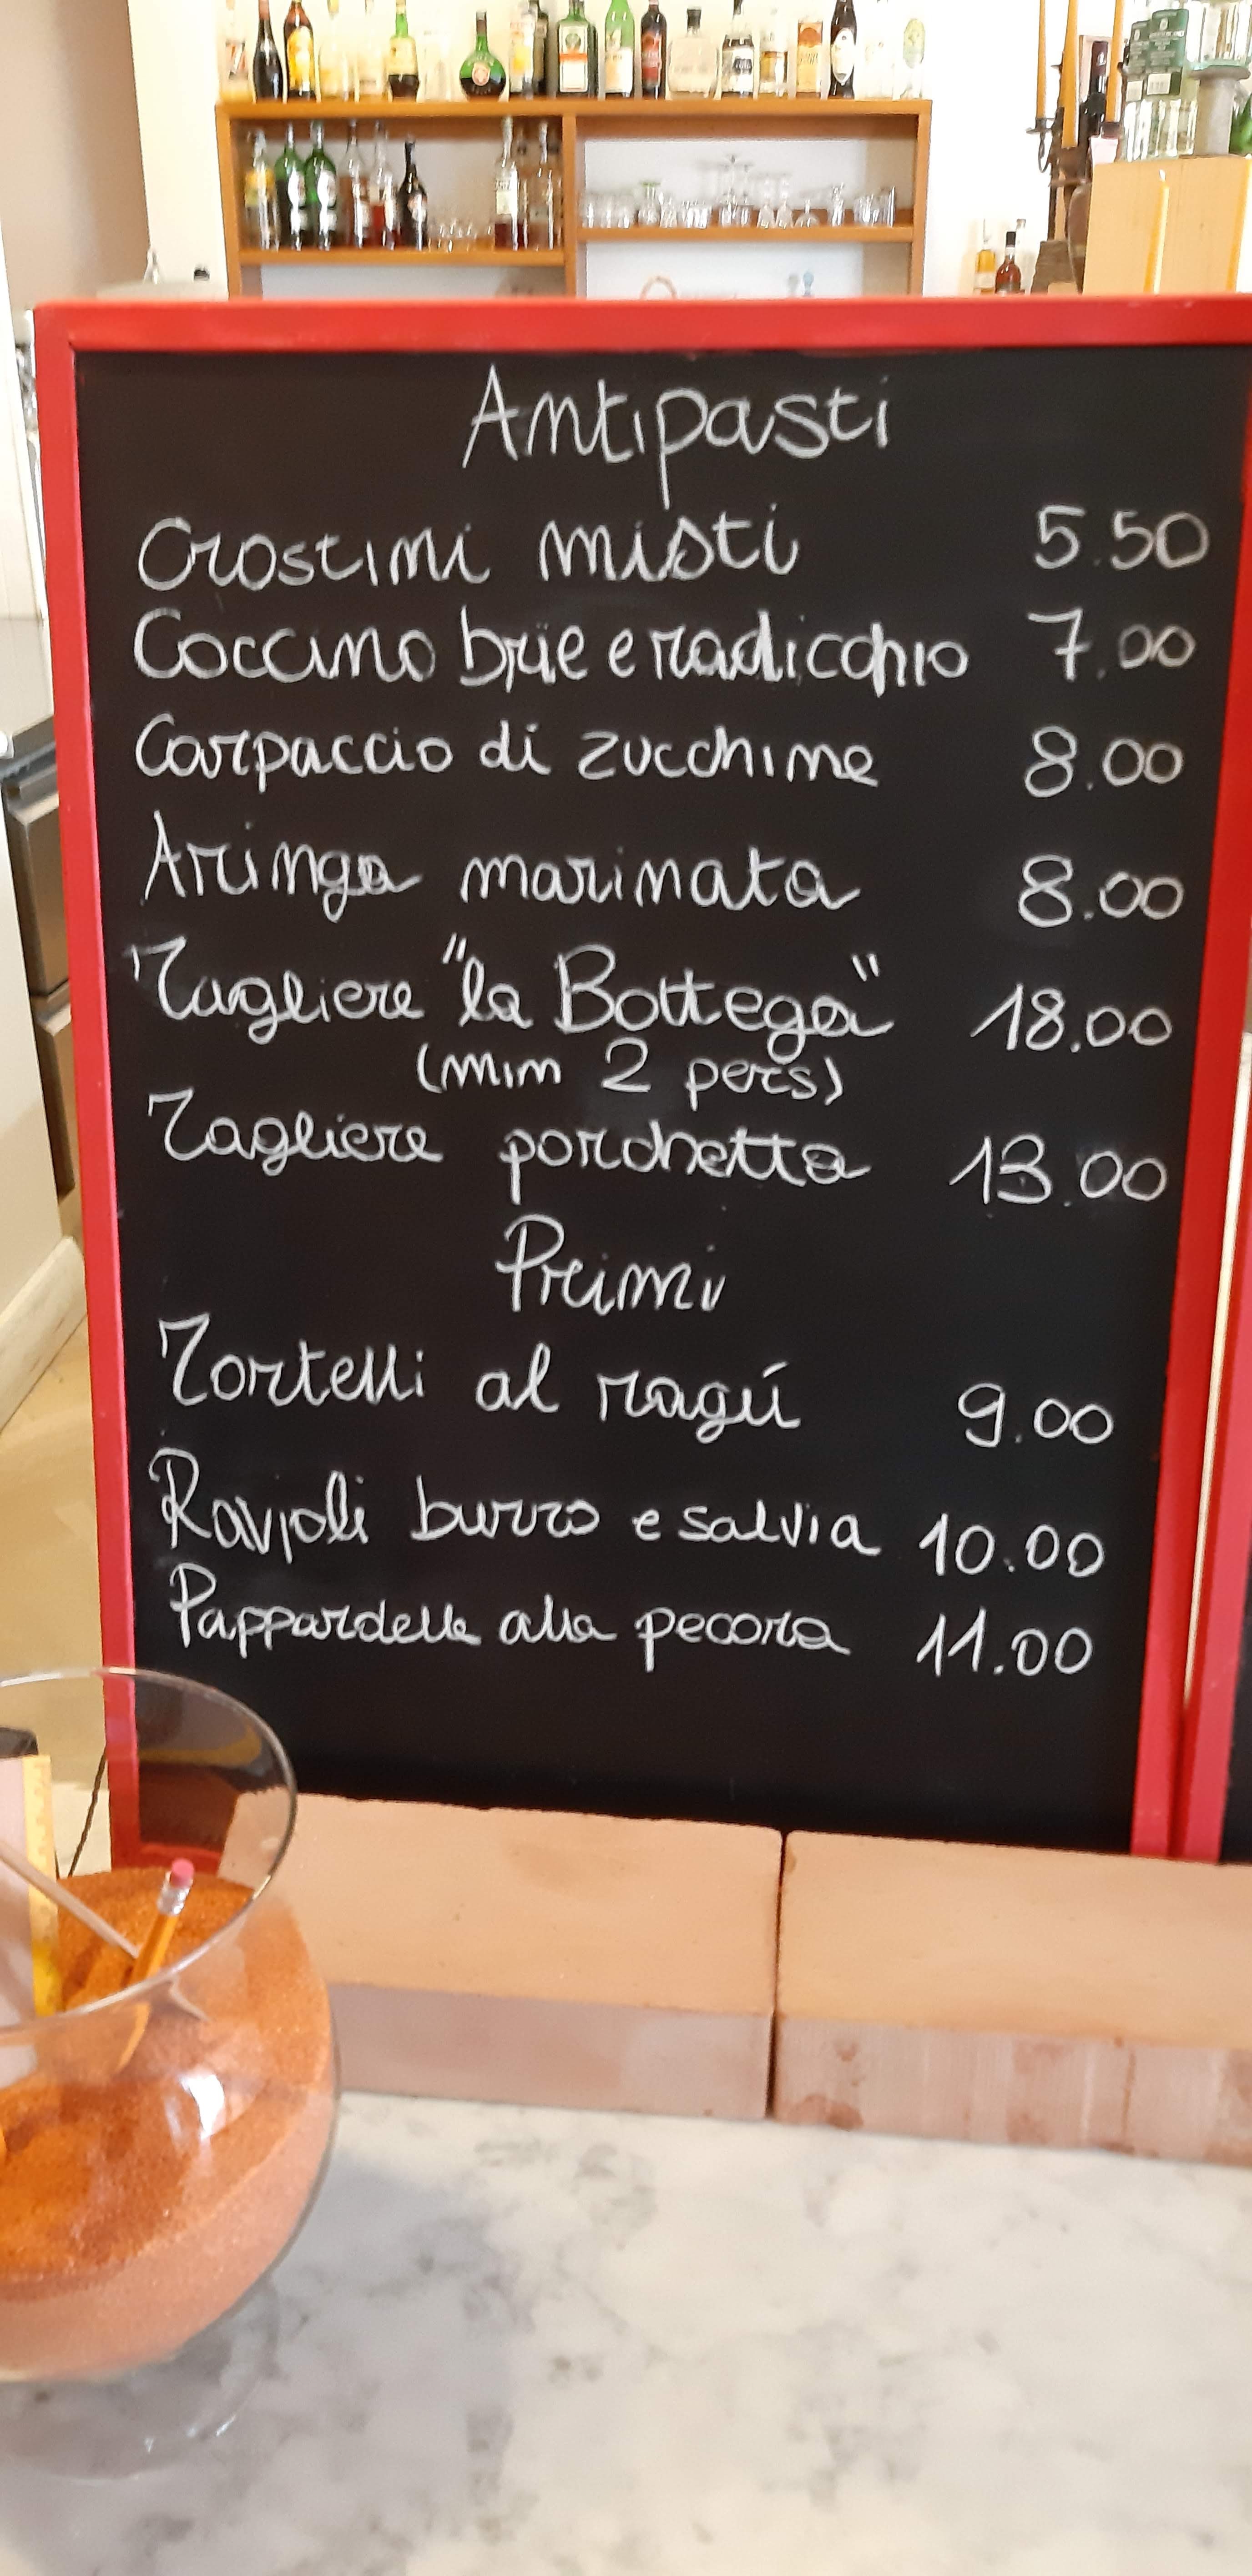 Antipasti
Crostini misti 5.50
Coccino brie e radicchio 7.00
Carpaccio di zucchine 8.00
Aringa marinata 8.00
Tagliere "la Bottega" 18.00
(min 2 pers)
Tagliere porchetta 13.00
Primi
Tortelli al ragú 9.00
Ravioli burro e salvia 10.00
Pappardelle alla pecora 11.00